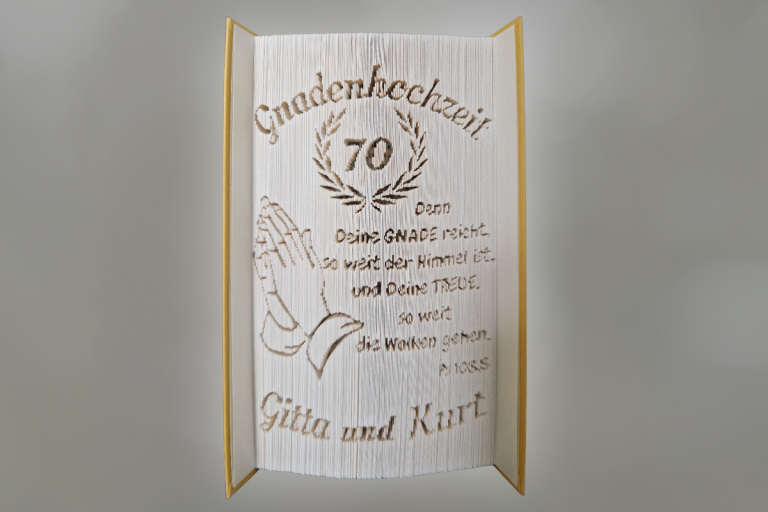 Gnadenhochzeit
70
Denn
Deine GNADE reicht,
so weit der Himmel ist.
und Deine TREUE,
so weit
die Wolken gehen.
Ps 108,5
Gitta und Kurt